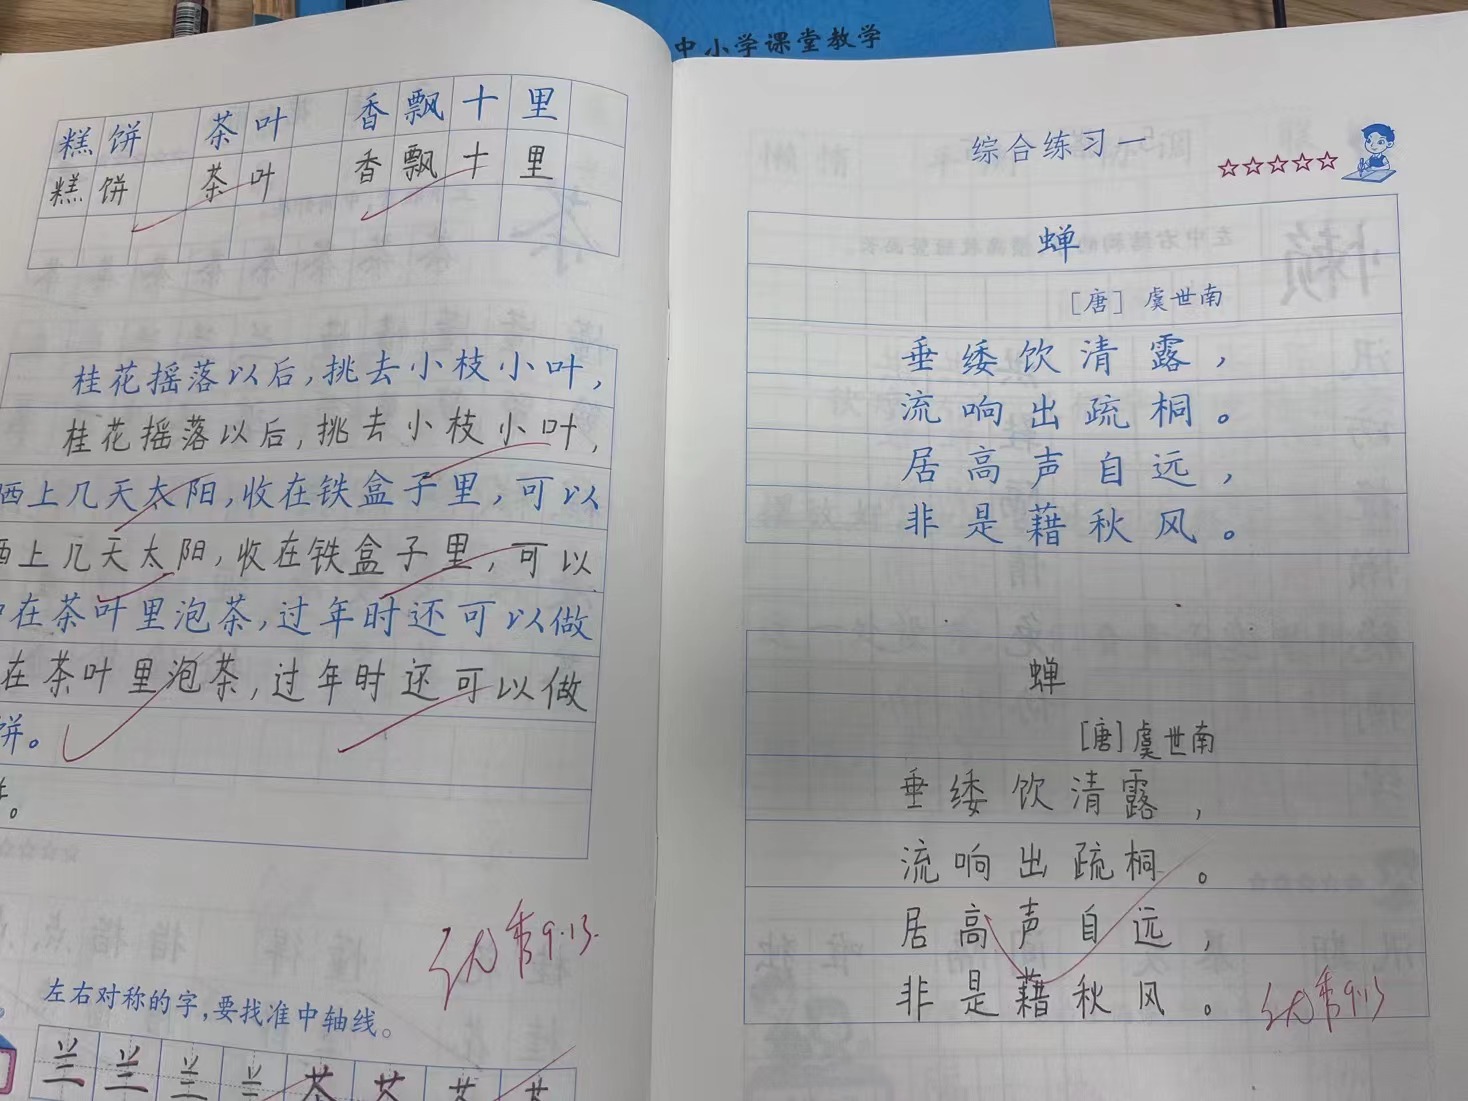 中小学课堂教学
糕饼 茶叶 香飘十里
糕饼 茶叶 香飘十里
桂花摇落以后,挑去小枝小叶,
桂花摇落以后,挑去小枝小叶,
晒上几天太阳,收在铁盒子里,可以
晒上几天太阳,收在铁盒子里,可以
在茶叶里泡茶,过年时还可以做
在茶叶里泡茶,过年时还可以做
饼。
优秀9.13.
左右对称的字,要找准中轴线。
兰兰兰兰茶茶茶茶
综合练习一
蝉
[唐] 虞世南
垂緌饮清露,
流响出疏桐。
居高声自远,
非是藉秋风。
蝉
[唐]虞世南
垂緌饮清露,
流响出疏桐。
居高声自远,
非是藉秋风。
优秀9.13